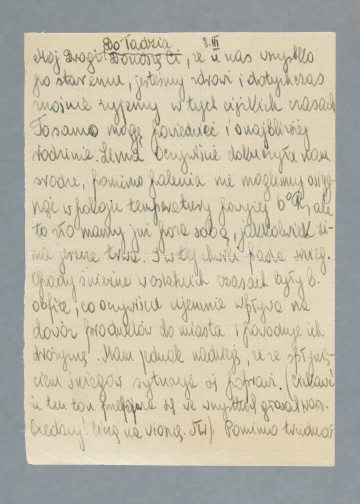 Do Tadzia 8.III
Mój Drogi! Donoszę Ci, że u nas wszystko
po staremu, jesteśmy zdrowi i dotychczas
znośnie żyjemy w tych ciężkich czasach
To samo mogę powiedzieć i o najbliższej
rodzinie. Zima oczywiście dokuczyła nam
srodze, pomimo palenia nie mogliśmy osią-
gnąć w pokoju temperatury powyżej 6°R, ale
to zło mamy już poza sobą, jakkolwiek zi-
ma jeszcze trwa i w tej chwili pada śnieg.
Opady śnieżne w ostatnich czasach były b.
obfite, co oczywiście ujemnie wpływa na
dowóz produktów do miasta i powoduje ich
drożyznę. Mam jednak nadzieję, że ze spłynię-
ciem śniegów sytuacja się poprawi. (Ciekawi
że ten ton się we wszystkich głosach
liczą na wiosnę.) Pomimo trudnoś